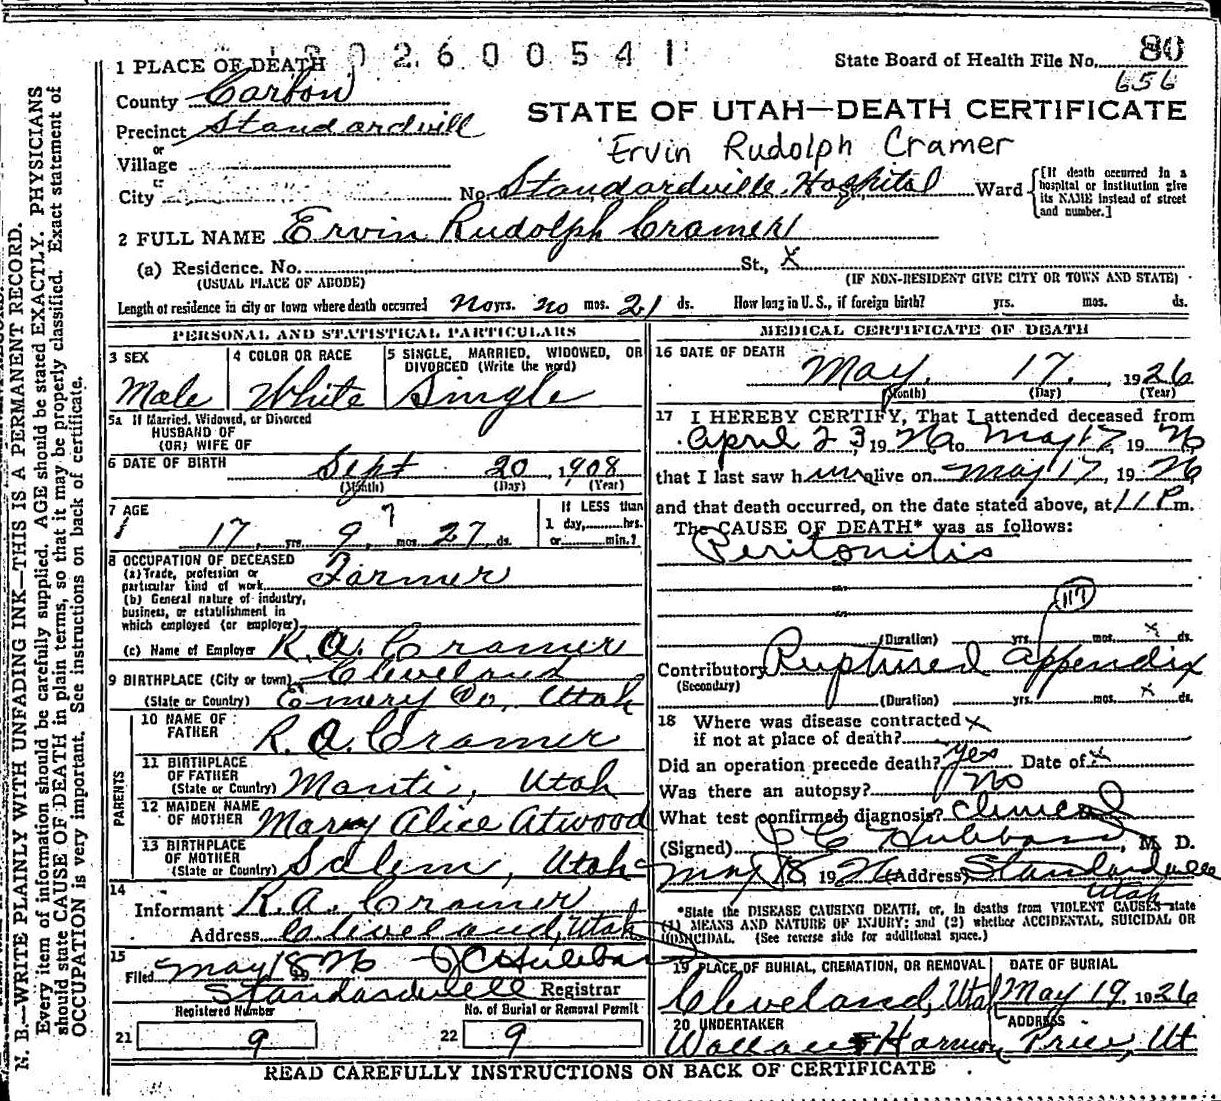 N. B.—WRITE PLAINLY WITH UNFADING INK—THIS IS A PERMANENT RECORD.
Every item of information should be carefully supplied. AGE should be stated EXACTLY. PHYSICIANS
should state CAUSE OF DEATH in plain terms, so that it may be properly classified. Exact statement of
OCCUPATION is very important. See instructions on back of certificate.
2600541
State Board of Health File No. 80
656
1 PLACE OF DEATH
County Carbon
STATE OF UTAH—DEATH CERTIFICATE
Precinct Standardvill
or
Village
Ervin Rudolph Cramer
or
City
No. Standardville Hospital Ward
[If death occurred in a
hospital or institution give
its NAME instead of street
and number.]
2 FULL NAME Ervin Rudolph Cramer
(a) Residence. No. St., X
(USUAL PLACE OF ABODE)
(IF NON-RESIDENT GIVE CITY OR TOWN AND STATE)
Length of residence in city or town where death occurred No yrs. no mos. 21 ds. How long in U. S., if foreign birth? yrs. mos. ds.
PERSONAL AND STATISTICAL PARTICULARS
3 SEX
Male
4 COLOR OR RACE
White
5 SINGLE, MARRIED, WIDOWED, OR
DIVORCED (Write the word)
Single
5a If Married, Widowed, or Divorced
HUSBAND OF
(OR) WIFE OF
6 DATE OF BIRTH Sept 20, 1908
(Month) (Day) (Year)
7 AGE
7
17 yrs. 9 mos. 27 ds.
If LESS than
1 day, hrs.
or min.?
8 OCCUPATION OF DECEASED
(a) Trade, profession or
particular kind of work Farmer
(b) General nature of industry,
business, or establishment in
which employed (or employer)
(c) Name of Employer R. A. Cramer
9 BIRTHPLACE (City or town) Cleveland
(State or Country) Emery Co, Utah
PARENTS
10 NAME OF
FATHER R. A. Cramer
11 BIRTHPLACE
OF FATHER
(State or Country) Manti, Utah
12 MAIDEN NAME
OF MOTHER Mary Alice Atwood
13 BIRTHPLACE
OF MOTHER
(State or Country) Salem, Utah
14
Informant R. A. Cramer
Address Cleveland, Utah
15
Filed May 18 26 J C Hubbard
Standardville Registrar
Registered Number
21 9
No. of Burial or Removal Permit
22 9
MEDICAL CERTIFICATE OF DEATH
16 DATE OF DEATH
May 17, 1926
(Month) (Day) (Year)
17 I HEREBY CERTIFY, That I attended deceased from
April 23 1926 to May 17, 1926
that I last saw him alive on May 17, 1926
and that death occurred, on the date stated above, at 11 P m.
The CAUSE OF DEATH* was as follows:
Peritonitis
117
(Duration) yrs. mos. x ds.
Contributory Ruptured appendix
(Secondary)
(Duration) yrs. mos. x ds.
18 Where was disease contracted x
if not at place of death?
Did an operation precede death? yes Date of x
Was there an autopsy? No
What test confirmed diagnosis? Clinical
(Signed) J C Hubbard, M. D.
May 18, 1926 (Address) Standardville
Utah
*State the DISEASE CAUSING DEATH, or, in deaths from VIOLENT CAUSES state
(1) MEANS AND NATURE OF INJURY; and (2) whether ACCIDENTAL, SUICIDAL OR
HOMICIDAL. (See reverse side for additional space.)
19 PLACE OF BURIAL, CREMATION, OR REMOVAL
Cleveland, Utah
DATE OF BURIAL
May 19, 1926
20 UNDERTAKER
Wallace & Harmon
ADDRESS
Price, Ut
READ CAREFULLY INSTRUCTIONS ON BACK OF CERTIFICATE